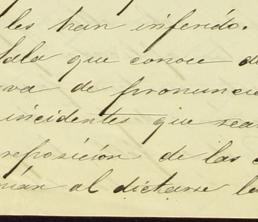 les han inferido.
Sala que conoce d
va de pronuncia
incidentes que sea
reposición de las
rán al dictarse l